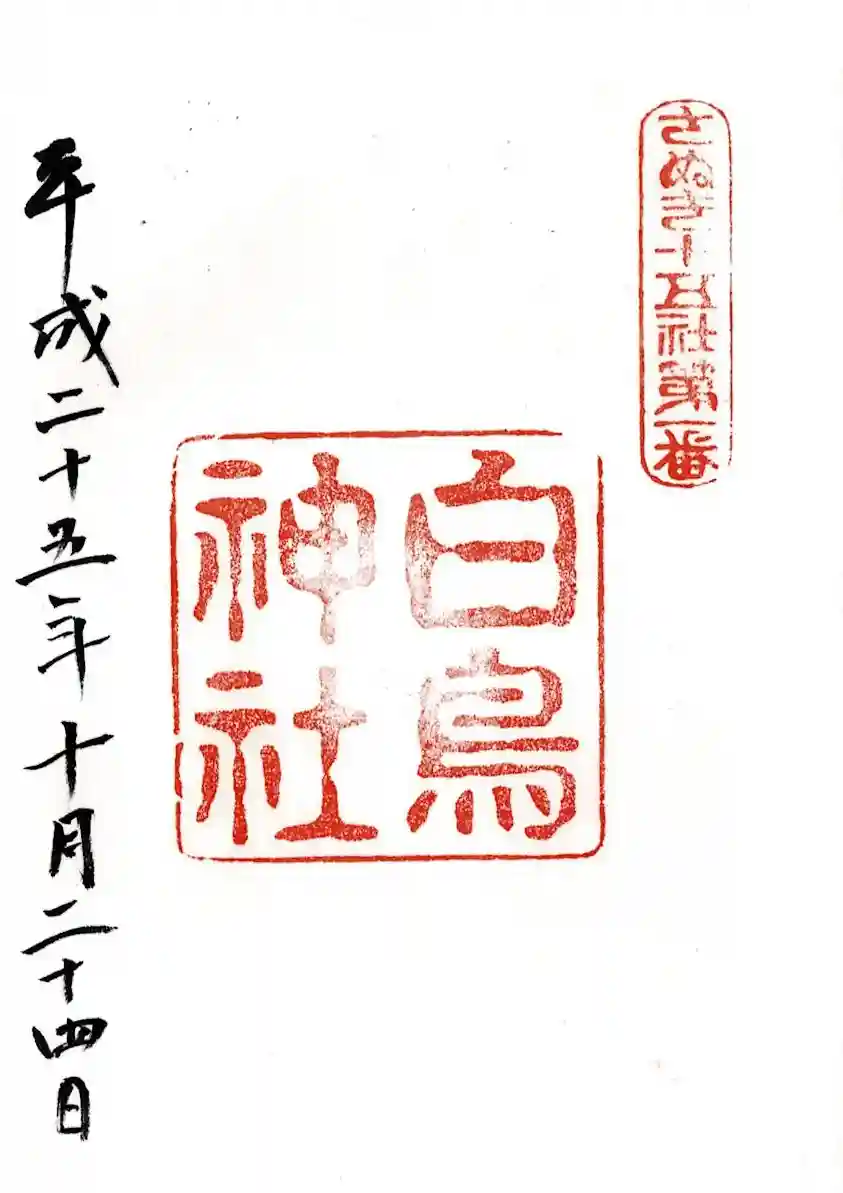 さぬき十五社第一番
白鳥
神社
平成二十五年十月二十四日